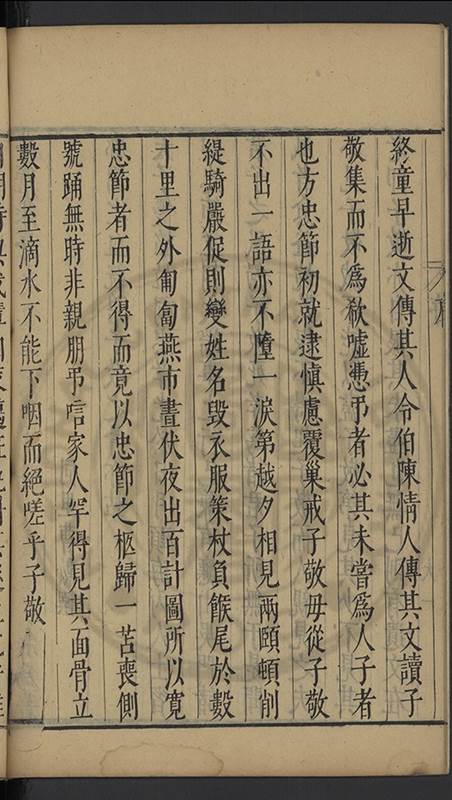 終童早逝文傳其人令伯陳情人傳其文讀子
敬集而不爲欷噓憑弔者必其未嘗爲人子者
也方忠節初就逮慎慮覆巢戒子敬毋從子敬
不出一語亦不墮一淚第越夕相見兩頤頓削
緹騎嚴促則變姓名毀衣服策杖負餱尾於數
十里之外匍匐燕市晝伏夜出百計圖所以寬
忠節者而不得而竟以忠節之柩歸一苫喪側
號踊無時非親朋弔唁家人罕得見其面骨立
數月至滴水不能下咽而絕嗟乎子敬